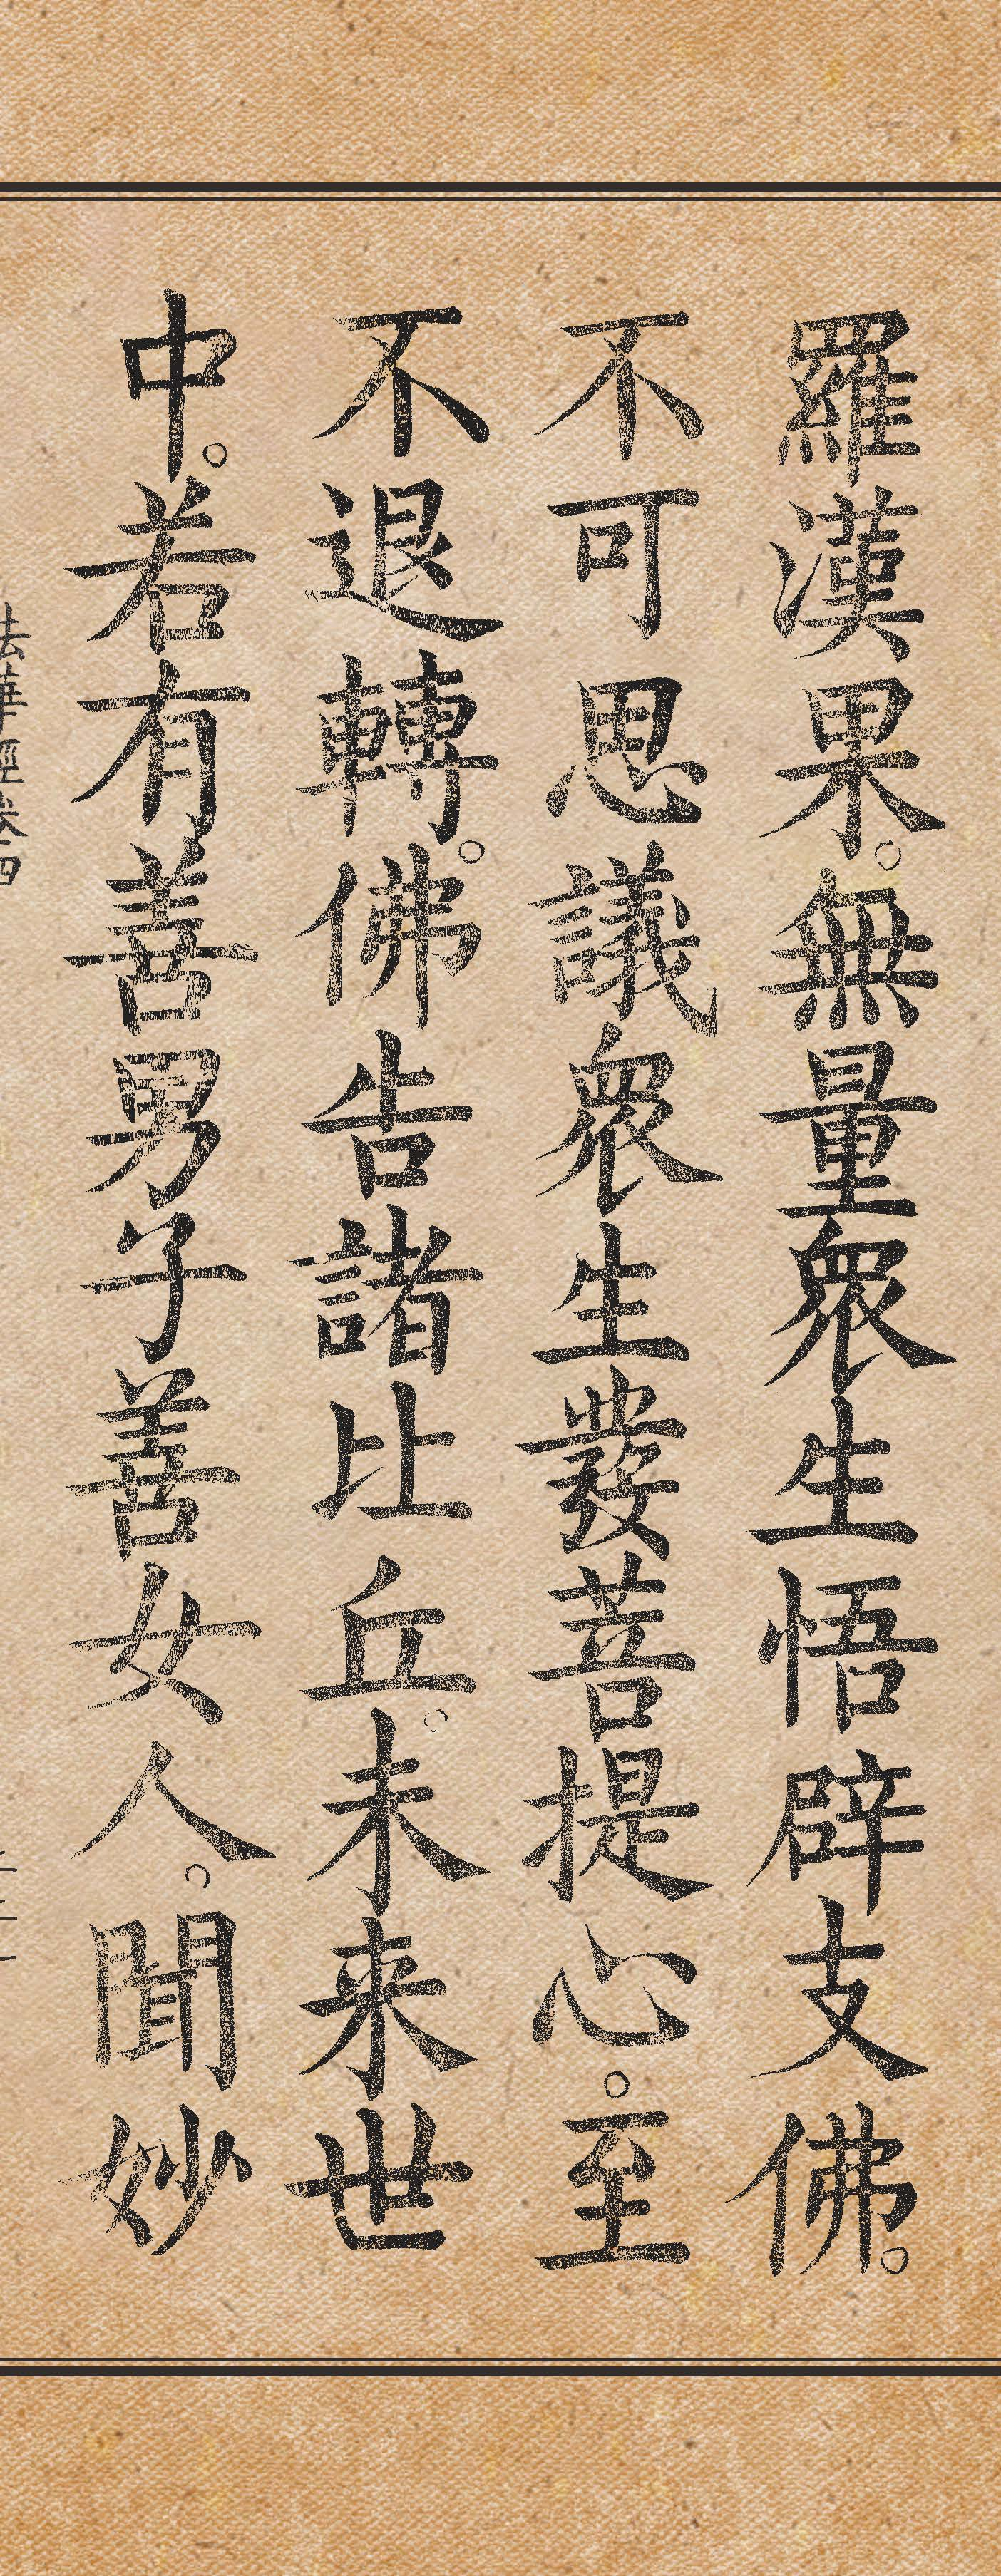 羅漢果。無量衆生悟辟支佛。
不可思議衆生發菩提心。至
不退轉。佛告諸比丘。未来世
中。若有善男子善女人。聞妙
法華經卷四